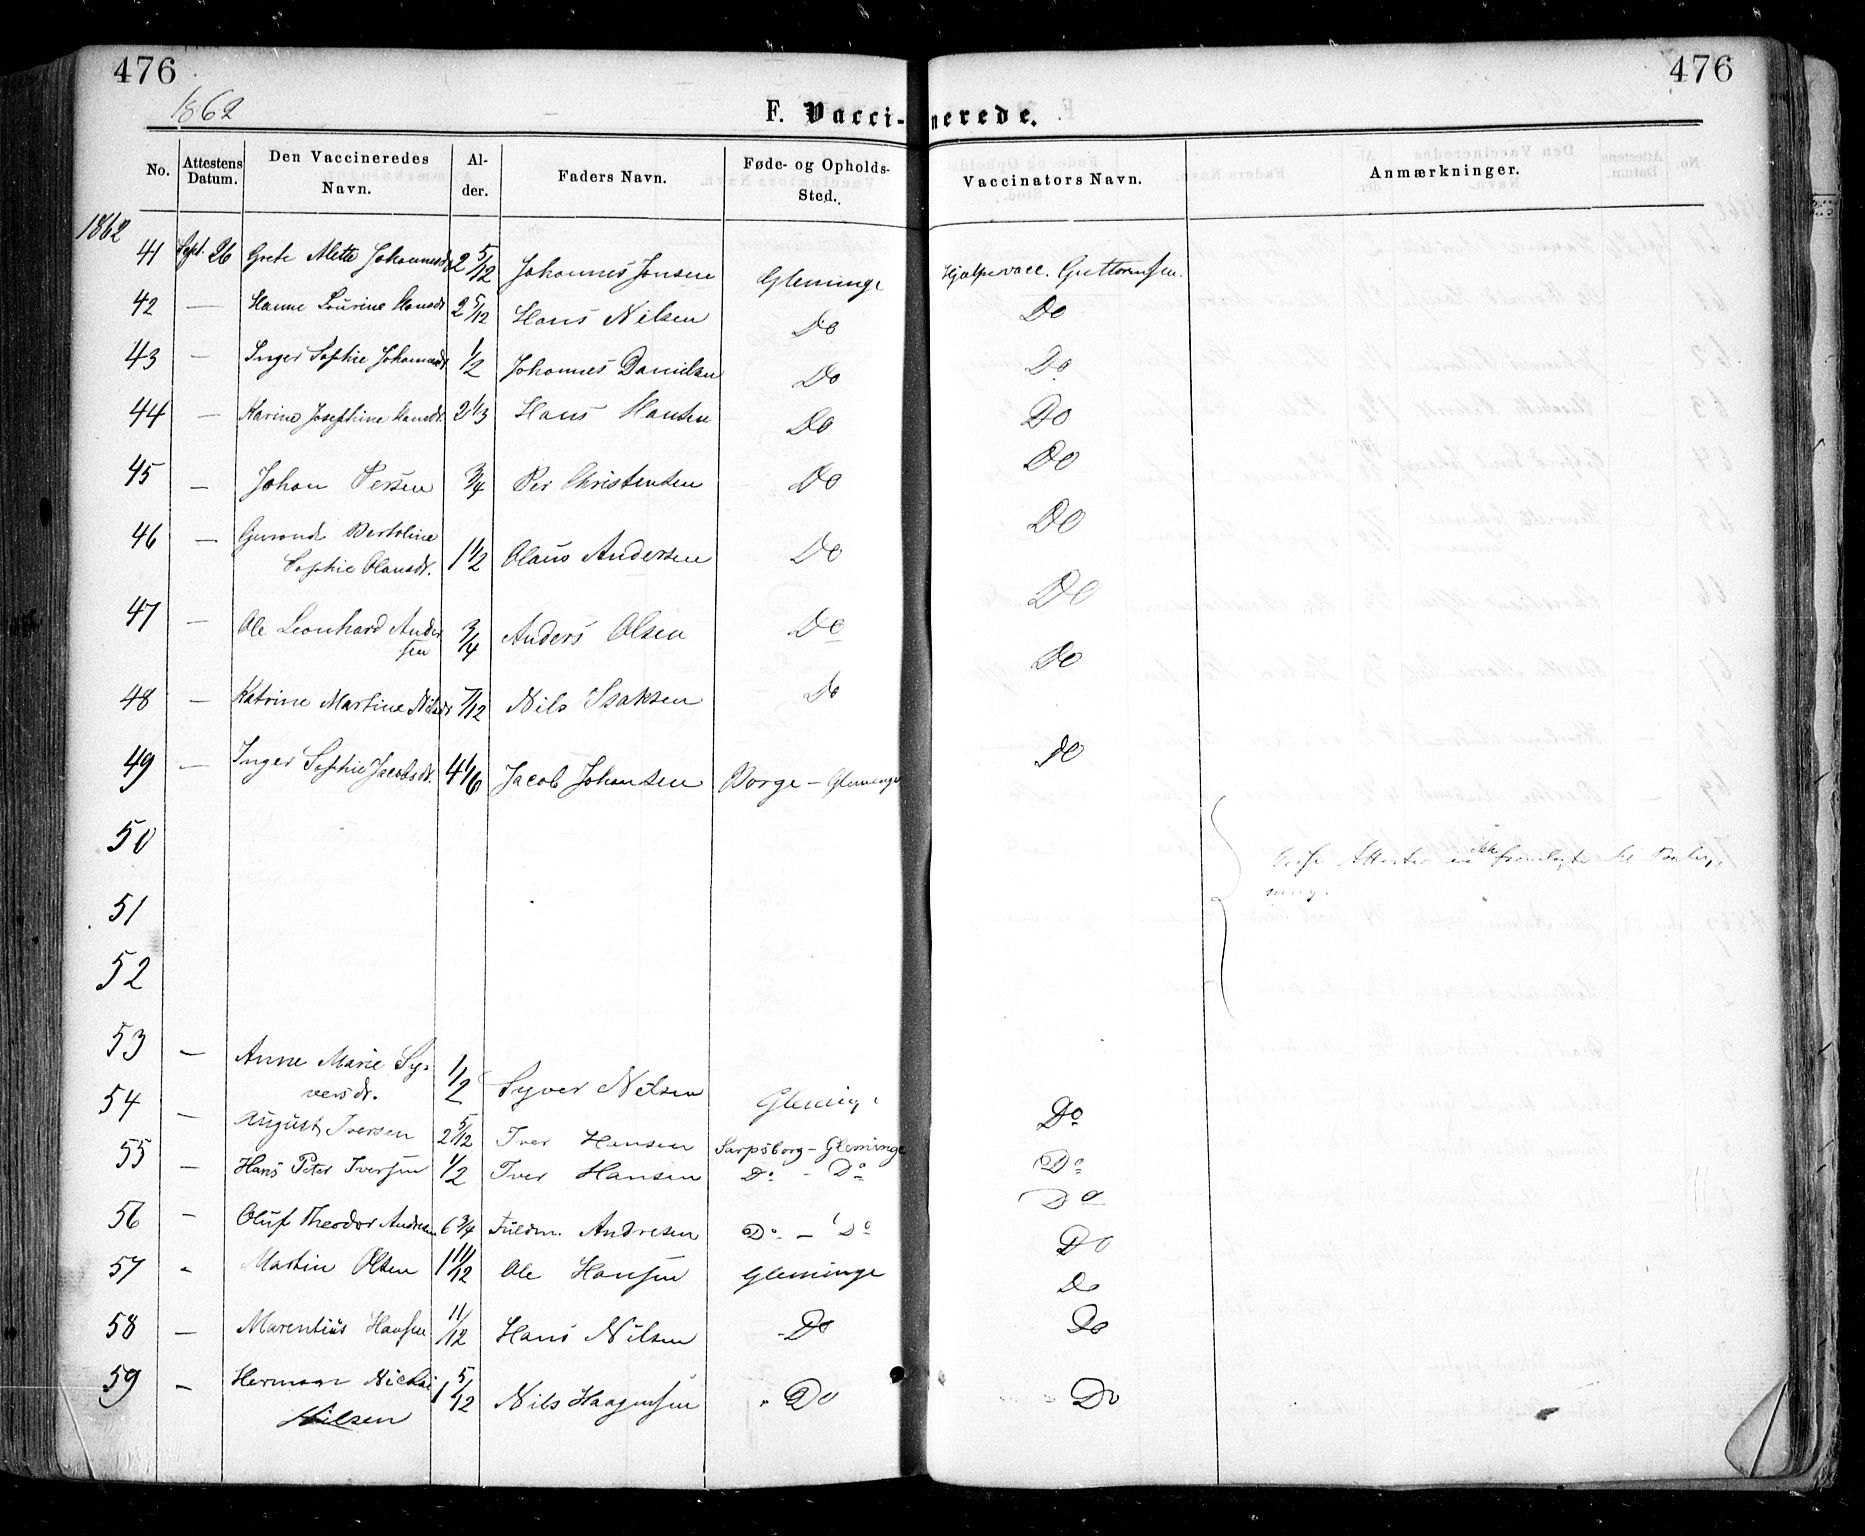 476 476
1862
F. Vaccinerede.
No. Attestens Datum. Den Vaccineredes Navn. Alder. Faders Navn. Føde- og Opholds-Sted. Vaccinators Navn. Anmærkninger.
1862
41 Sept. 26 Grete Mette Johannesdr 2 5/12 Johannes Jonsen Gleminge Hjælpevacc. Guttormsen.
42 — Hanne Lourine Hansdr 2 5/12 Hans Nilsen Do Do
43 — Inger Sophie Johannesdr 1/2 Johannes Danielsen Do Do
44 — Karine Josephine Hansdr. 2 1/3 Hans Hansen Do Do
45 — Johan Persen 3/4 Per Christensen Do Do
46 — Gunond Bertoline
Sophie Olausdr. 1 1/2 Olaus Andersen Do Do
47 — Ole Leonhard Ander
sen 3/4 Anders Olsen Do Do
48 — Katrine Martine Nilsdr 7/12 Nils Isaksen Do Do
49 — Inger Sophie Jacobsdr. 4 1/6 Jacob Johansen Borge – Gleminge Do
50
Attester ikke
51
52
53 — Anne Marie Sy-
versdr. 1/2 Syver Nilsen Gleminge Do
54 — August Iversen 2 5/12 Iver Hansen Sarpsborg – Gleminge Do
55 — Hans Peter Iversen 1/2 Iver Hansen Do – Do Do
56 – Oluf Theodor Andresen 6 3/4 Fuldm. Andresen Do – Do Do
57 - Martin Olsen 1 11/12 Ole Hansen Gleminge Do
58 — Marentius Hansen 11/12 Hans Nilsen Do Do
59 – Herman Nicolai
Nilsen 1 5/12 Nils Haagensen Do Do